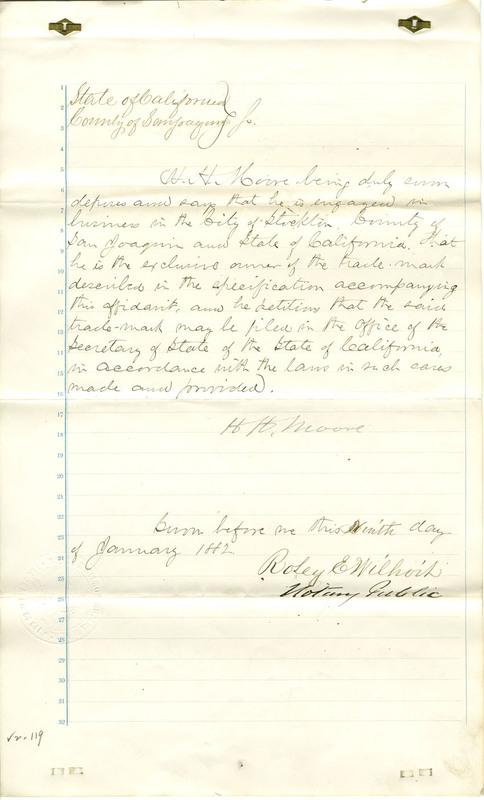 State of California }
County of San Joaquin } ss.
H. H. Moore being duly sworn
deposes and says that he is engaged in
business in the City of Stockton, County of
San Joaquin and State of California. That
he is the exclusive owner of the trade-mark
described in the specification accompanying
this affidavit, and he petitions that the said
trade-mark may be filed in the office of the
Secretary of State of the State of California,
in accordance with the laws in such cases
made and provided.
H. H. Moore
Sworn before me this Ninth day
of January 1882
Rosey E Wilhoit
Notary Public
1
2
3
4
5
6
7
8
9
10
11
12
13
14
15
16
17
18
19
20
21
22
23
24
25
26
27
28
29
30
31
32